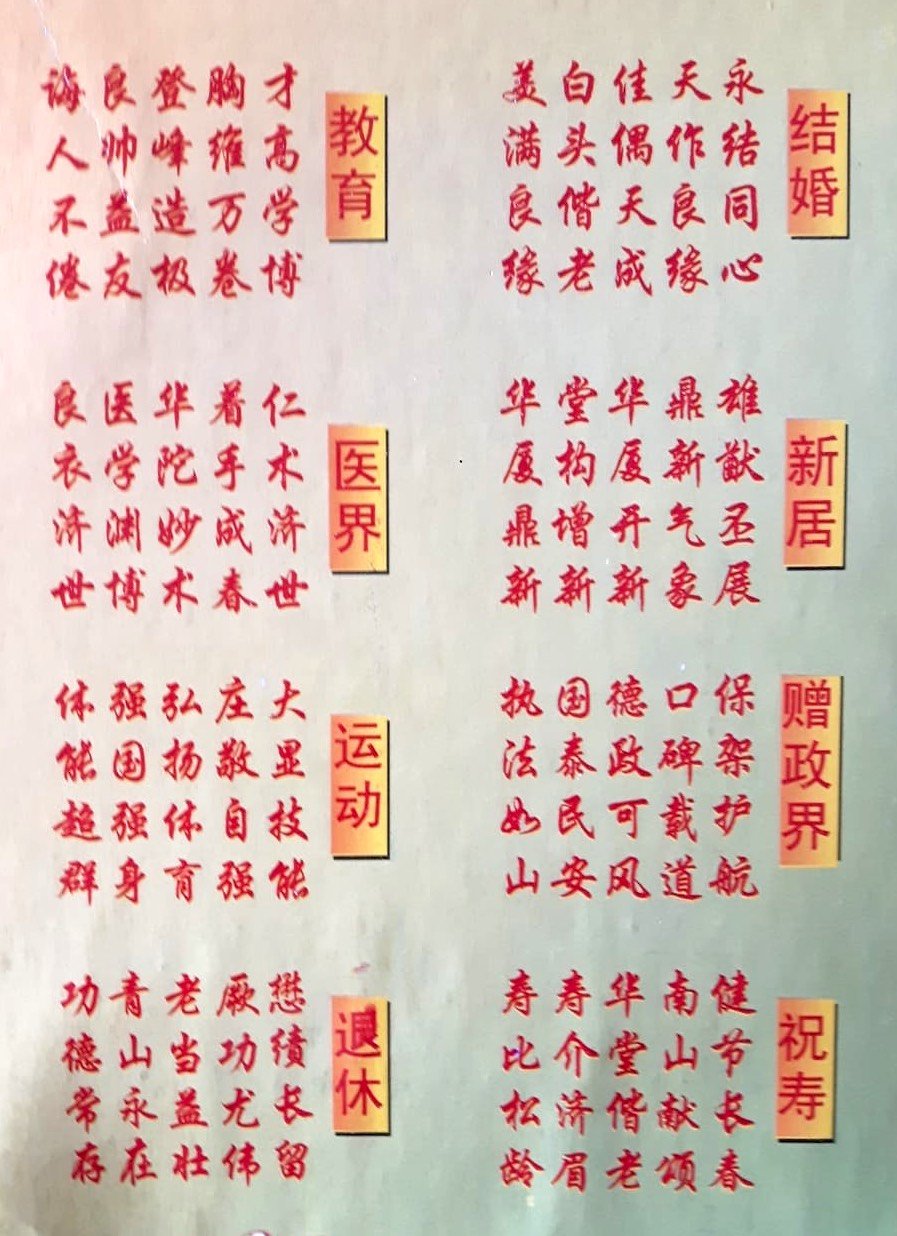 结婚
永结同心
天作良缘
佳偶天成
白头偕老
美满良缘
教育
才高学博
胸维万卷
登峰造极
良帅益友
诲人不倦
新居
雄猷丕展
鼎新气象
华厦开新
堂构增新
华厦鼎新
医界
仁术济世
着手成春
华陀妙术
医学渊博
良衣济世
赠政界
保架护航
口碑载道
德政可风
国泰民安
执法如山
运动
大显技能
庄敬自强
弘扬体育
强国强身
体能超群
祝寿
健节长春
南山献颂
华堂偕老
寿介济眉
寿比松龄
退休
懋绩长留
厥功尤伟
老当益壮
青山永在
功德常存